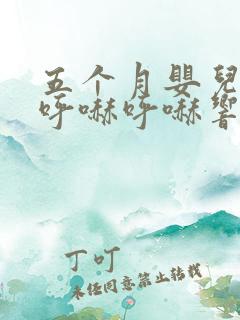 五个月嬰兒
呼嚇呼嚇響
丁叮
未经同意禁止转载